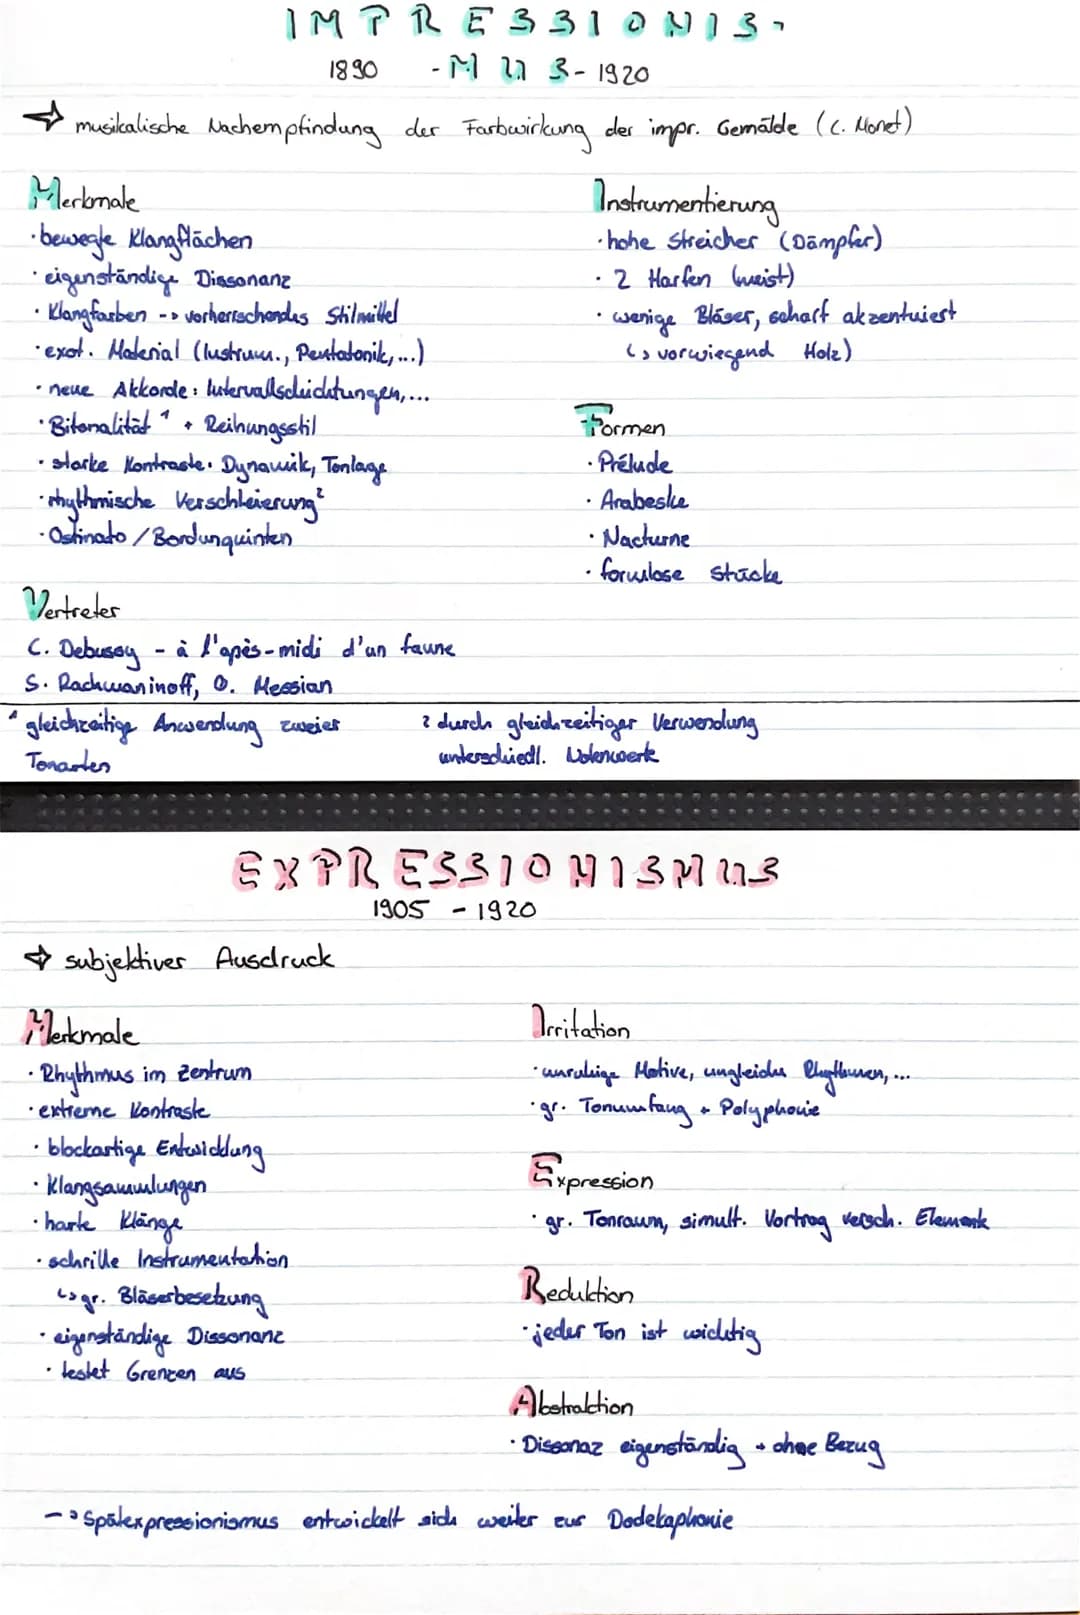 IMPRESSIONIS-
1890 -MUS- 1920
→ musikalische Nachempfindung der Farbwirkung der impr. Gemälde (C. Monet)
Merkmale
· bewegte Klangflächen
· eigenständige Dissonanz
· Klangfarben -> vorherrschendes Stilmittel
· exot. Material (Instrum., Pentatonik,...)
· neue Akkorde: Intervallschichtungen,...
· Bitonalität ¹ + Reihungsstil
· starke Kontraste: Dynamik, Tonlage
· rhythmische Verschleierung²
· Ostinato / Bordunquinten
Instrumentierung
· hohe Streicher (Dämpfer)
· 2 Harfen (meist)
· wenige Bläser, scharf akzentuiert
(↳ vorwiegend Holz)
Formen
· Prélude
· Arabeske
· Nocturne
· formlose Stücke
Vertreter
C. Debussy - à l'apès-midi d'un faune
S. Rachmaninoff, O. Messian
¹ gleichzeitige Anwendung zweier
Tonarten
² durch gleichzeitiger Verwendung
unterschiedl. Notenwerte
EXPRESSIONISMUS
1905 - 1920
→ subjektiver Ausdruck
Merkmale
· Rhythmus im Zentrum
· extreme Kontraste
· blockartige Entwicklung
· Klangsammlungen
· harte Klänge
· schrille Instrumentation
↳ gr. Bläserbesetzung
· eigenständige Dissonanz
· testet Grenzen aus
Irritation
· unruhige Motive, ungleiche Rhythmen, ...
· gr. Tonumfang + Polyphonie
Expression
· gr. Tonraum, simult. Vortrag versch. Elemente
Reduktion
· jeder Ton ist wichtig
Abstraktion
· Dissonaz eigenständig + ohne Bezug
-> Spätexpressionismus entwickelt sich weiter zur Dodekaphonie